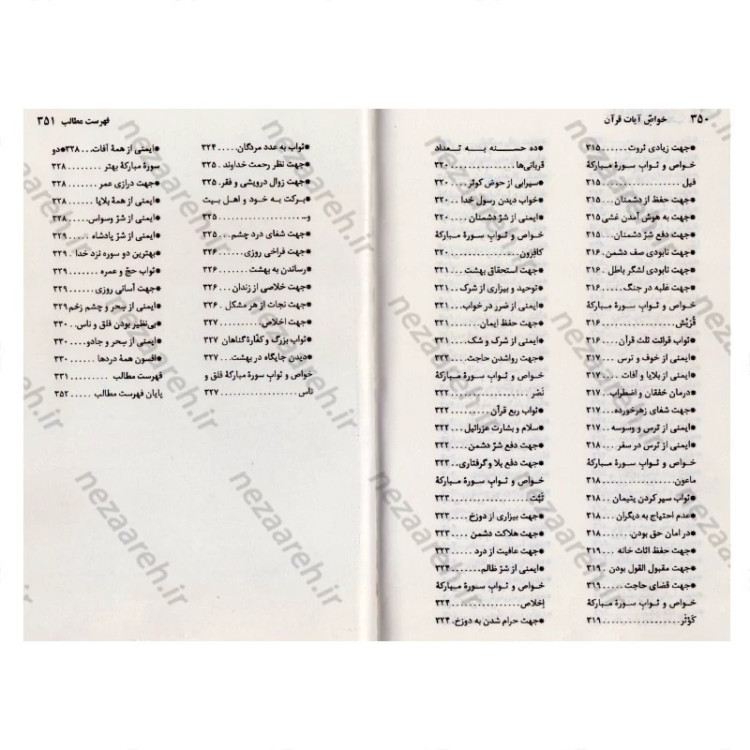 ۳۵۰ خواصّ آیات قرآن
●جهت زیادی ثروت ..... ۳۱۵
خواص و ثواب سورهٔ مبارکهٔ
فیل ............ ۳۱۵
●جهت حفظ از دشمنان .... ۳۱۵
●جهت به هوش آمدن غشی ۳۱۵
●جهت دفع شرّ دشمنان ... ۳۱۵
●جهت نابودی صف دشمن . ۳۱۶
●جهت نابودی لشگر باطل . ۳۱۶
●جهت غلبه در جنگ .... ۳۱۶
خواص و ثواب سورهٔ مبارکهٔ
قُرَیْش ............ ۳۱۶
●ثواب قرائت ثلث قرآن ... ۳۱۶
●ایمنی از خوف و ترس .. ۳۱۷
●ایمنی از بلایا و آفات ... ۳۱۷
●درمان خفقان و اضطراب . ۳۱۷
●جهت شفای زهرخورده .... ۳۱۷
●ایمنی از ترس و وسوسه .. ۳۱۷
●ایمنی از ترس در سفر ... ۳۱۸
خواص و ثواب سورهٔ مبارکهٔ
ماعون ............ ۳۱۸
●ثواب سیر کردن یتیمان . ۳۱۸
●عدم احتیاج به دیگران ... ۳۱۸
●در امان حق بودن ..... ۳۱۸
●جهت حفظ اثاث خانه ... ۳۱۹
●جهت مقبول القول بودن . ۳۱۹
●جهت قضای حاجت .... ۳۱۹
خواص و ثواب سورهٔ مبارکهٔ
کَوْثَر ............ ۳۱۹
●ده حسنه به تعداد
قربانی‌ها ............ ۳۲۰
●سیرابی از حوض کوثر ... ۳۲۰
●خواب دیدن رسول خدا .. ۳۲۰
●ایمنی از شرّ دشمنان .... ۳۲۰
خواص و ثواب سورهٔ مبارکهٔ
کافِرون ............ ۳۲۰
●جهت استحقاق بهشت ... ۳۲۱
●توحید و بیزاری از شرک . ۳۲۱
●ایمنی از ضرر در خواب . ۳۲۱
●جهت حفظ ایمان ...... ۳۲۱
●ایمنی از شرک و شک ... ۳۲۱
●جهت رواشدن حاجت ... ۳۲۲
خواص و ثواب سورهٔ مبارکهٔ
نَصْر ............ ۳۲۲
●ثواب ربع قرآن ...... ۳۲۲
●سلام و بشارت عزرائیل . ۳۲۲
●جهت دفع شرّ دشمن ... ۳۲۲
●جهت دفع بلا و گرفتاری .. ۳۲۳
خواص و ثواب سورهٔ مبارکهٔ
تَبَّت ............ ۳۲۳
●جهت بیزاری از دوزخ ... ۳۲۳
●جهت هلاکت دشمن ... ۳۲۳
●جهت عافیت از درد .... ۳۲۳
●ایمنی از شرّ ظالم ..... ۳۲۴
خواص و ثواب سورهٔ مبارکهٔ
اِخلاص ............ ۳۲۴
●جهت حرام شدن به دوزخ . ۳۲۴
فهرست مطالب ۳۵۱
●ثواب به عدد مردگان ..... ۳۲۴
●جهت نظر رحمت خداوند . ۳۲۵
●جهت زوال درویشی و فقر . ۳۲۵
●برکت به خود و اهل بیت
و... ............ ۳۲۵
●جهت شفای درد چشم ... ۳۲۵
●جهت فراخی روزی ..... ۳۲۶
●رساندن به بهشت ..... ۳۲۶
●جهت خلاصی از زندان .. ۳۲۶
●جهت نجات از هر مشکل . ۳۲۶
●جهت اخلاص ........ ۳۲۷
●ثواب بزرگ و کفّارهٔ گناهان ۳۲۷
●دیدن جایگاه در بهشت .. ۳۲۷
خواص و ثواب سورهٔ مبارکهٔ فلق و
ناس ............ ۳۲۷
●ایمنی از همهٔ آفات ... ۳۲۸●دو
سورهٔ مبارکهٔ بهتر ..... ۳۲۸
●جهت درازی عمر ..... ۳۲۸
●ایمنی از همهٔ بلایا .... ۳۲۸
●ایمنی از شرّ وسواس ... ۳۲۸
●ایمنی از شرّ پادشاه .. ۳۲۹
●بهترین دو سوره نزد خدا . ۳۲۹
●ثواب حجّ و عمره ..... ۳۲۹
●جهت آسانی روزی .... ۳۲۹
●ایمنی از سِحر و چشم زخم ۳۲۹
●بی‌نظیر بودن فلق و ناس .. ۳۳۰
●ایمنی از سِحر و جادو .... ۳۳۰
●افسون همهٔ دردها ..... ۳۳۰
فهرست مطالب ........ ۳۳۱
پایان فهرست مطالب ... ۳۵۲
nezaareh.ir
nezaareh.ir
nezaareh.ir
nezaareh.ir
nezaareh.ir
nezaareh.ir